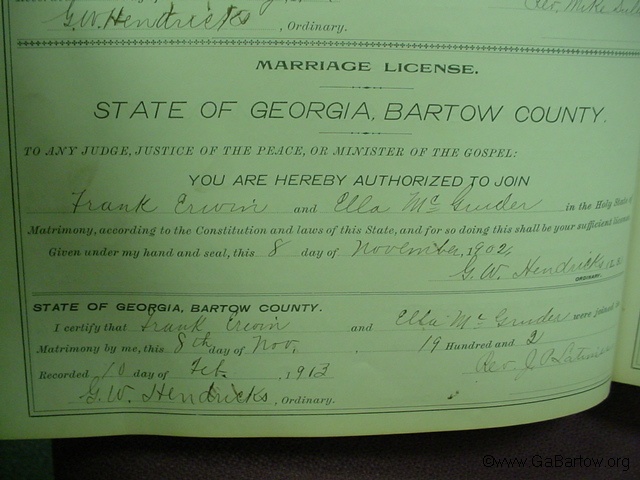 G.W. Hendricks, Ordinary.
Rev. Mike
MARRIAGE LICENSE.
STATE OF GEORGIA, BARTOW COUNTY.
TO ANY JUDGE, JUSTICE OF THE PEACE, OR MINISTER OF THE GOSPEL:
YOU ARE HEREBY AUTHORIZED TO JOIN
Frank Erwin and Ella McGruder in the Holy State
Matrimony, according to the Constitution and laws of this State, and for so doing this shall be your sufficient license
Given under my hand and seal, this 8 day of November, 1902,
G. W. Hendricks
ORDINARY.
STATE OF GEORGIA, BARTOW COUNTY.
I certify that Frank Erwin and Ella McGruder were joined
Matrimony by me, this 8th day of Nov. 19 Hundred and 2
Rev. J.
Recorded 10 day of Feb, 1913
G.W. Hendricks, Ordinary.
©www.GaBartow.org